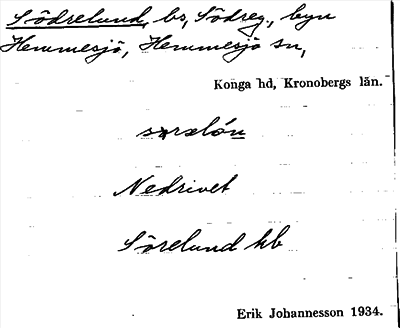 Södrelund, bs, Södreg., byn
Hemmesjö, Hemmesjö sn,
Konga hd, Kronobergs län.
Nedrivet
Sörelund hb
Erik Johannesson 1934.